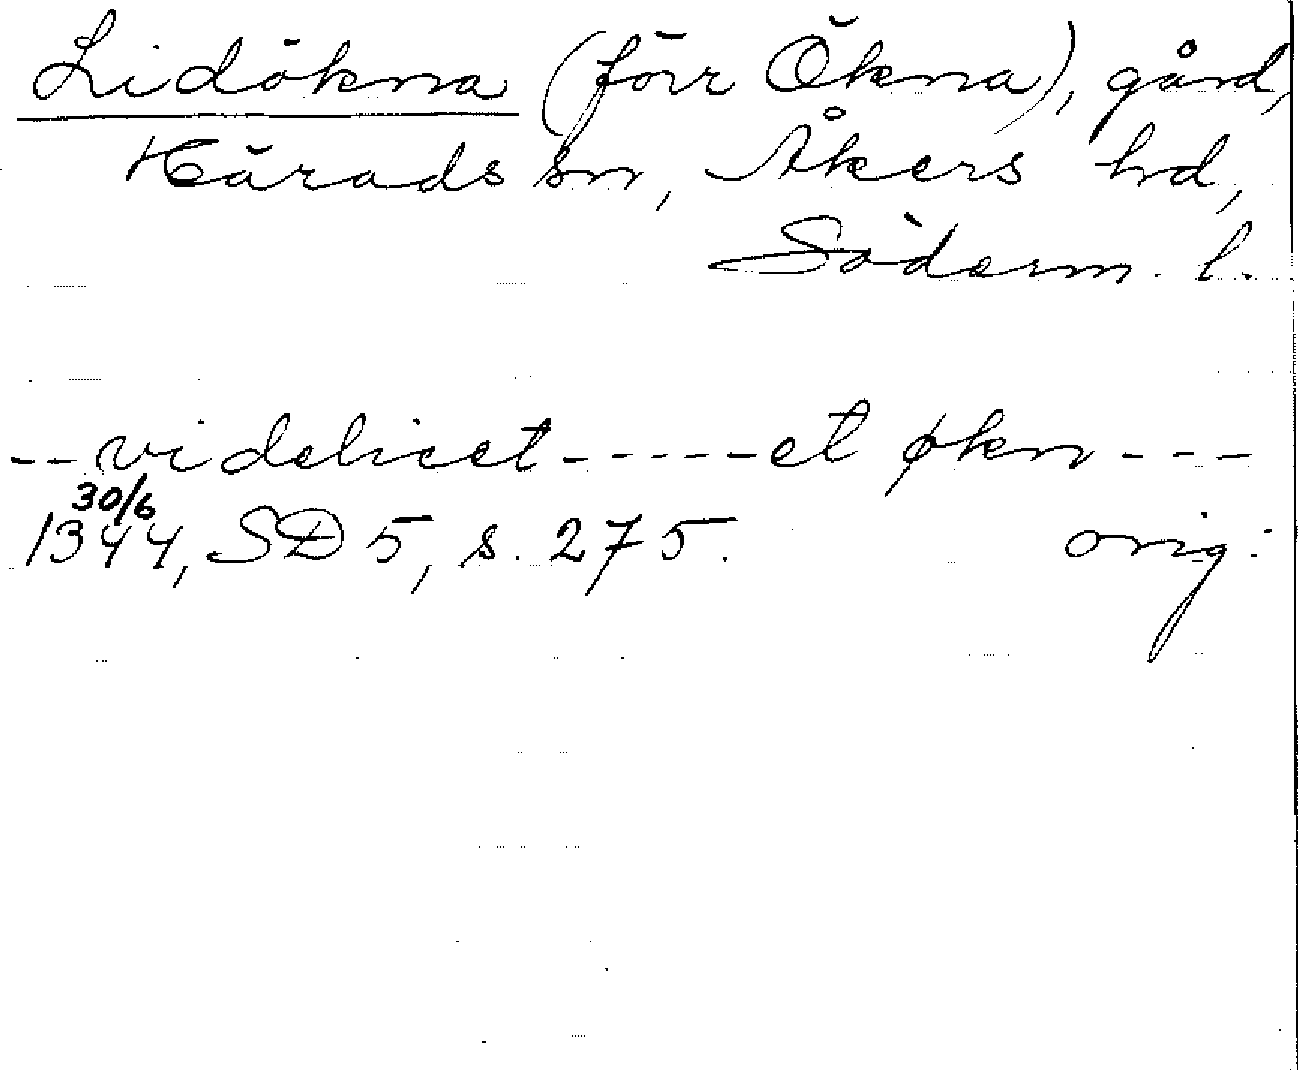 Lidökna (förr Ökna), gård,
Härads sn, Åkers hd,
Söderm. l.
-- videlicet ----- et økn ---
30/6
1344, SD 5, s. 275. orig.